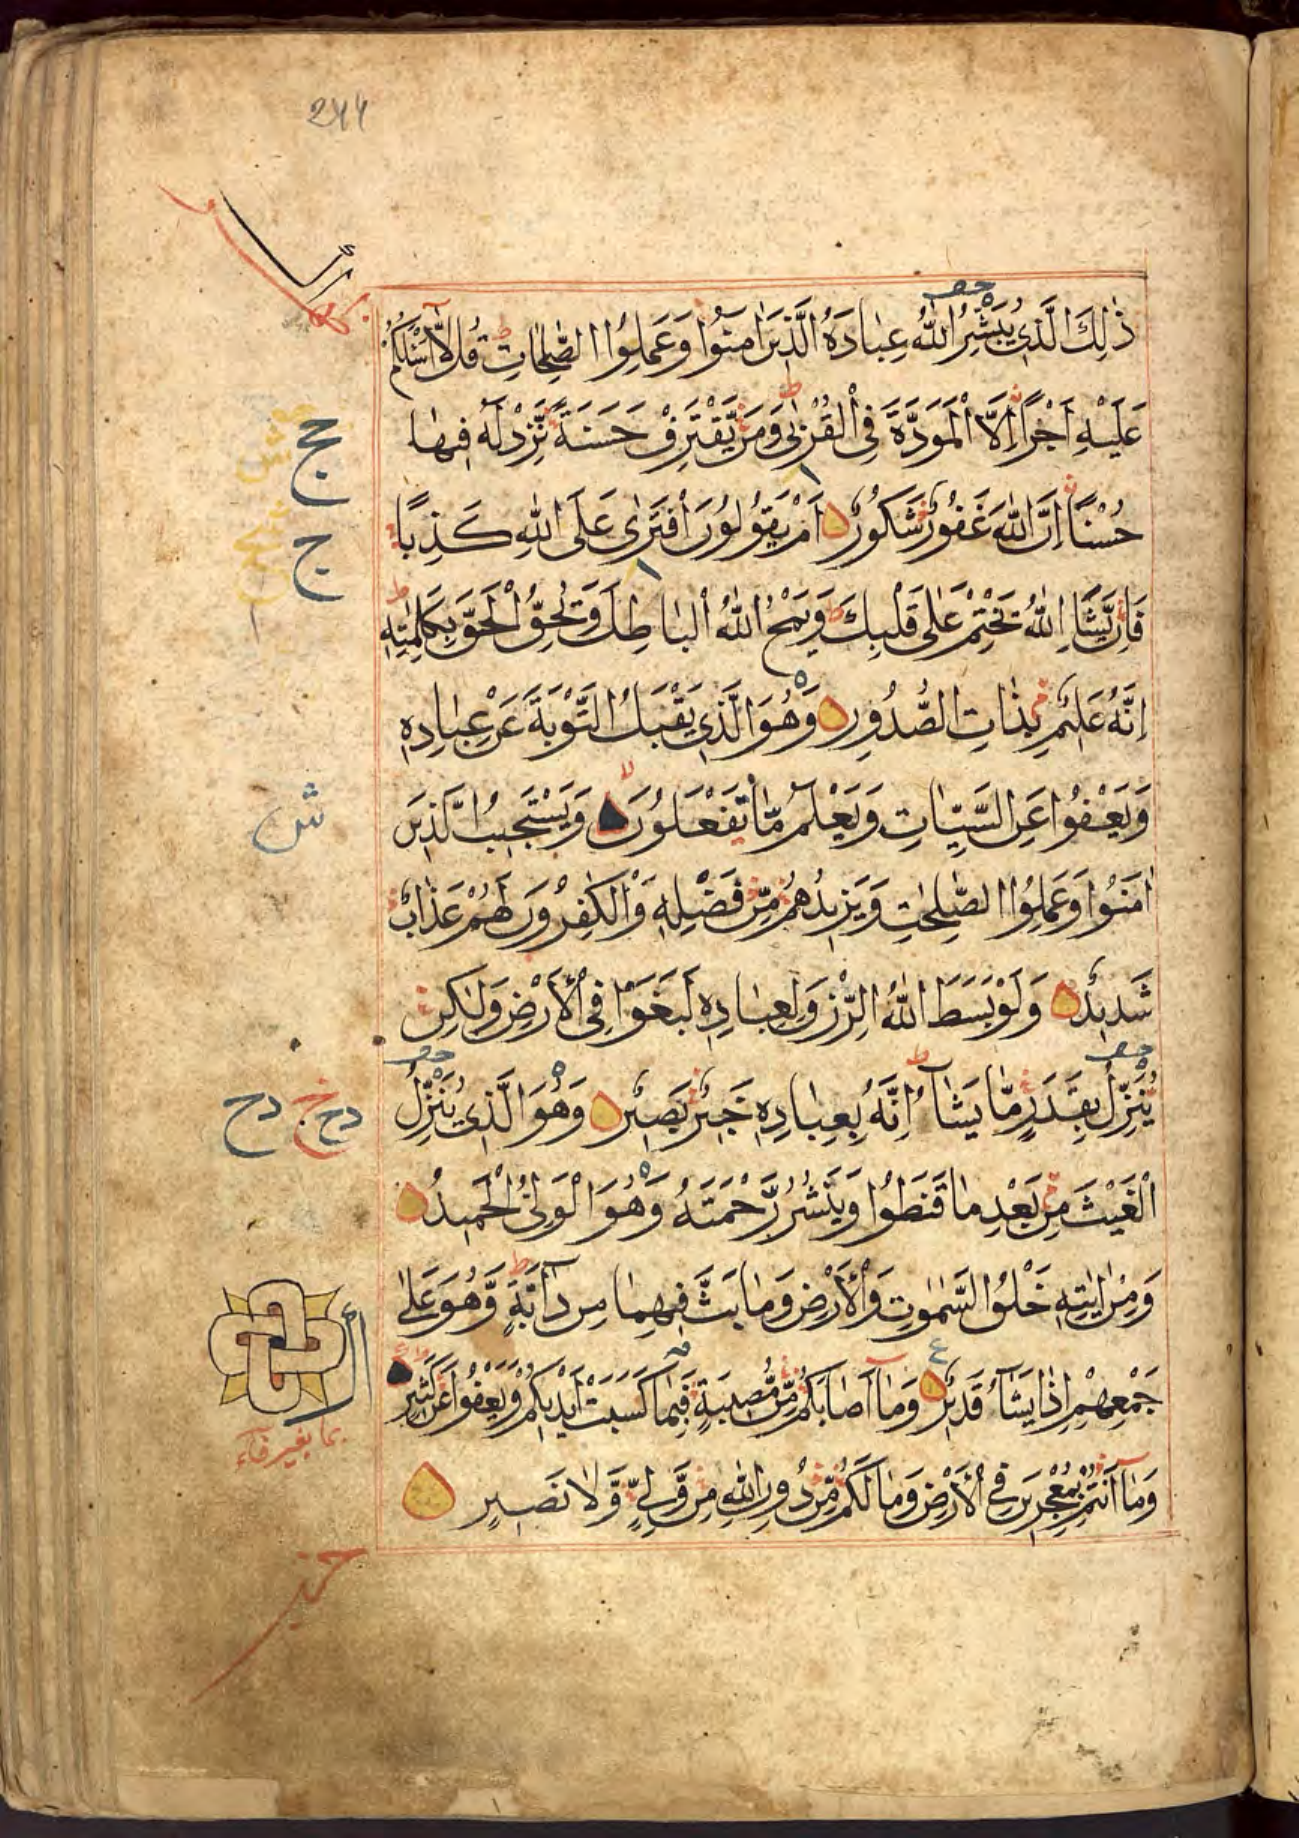 244
ذٰلِكَ الَّذِي يُبَشِّرُ اللّٰهُ عِبَادَهُ الَّذِينَ اٰمَنُوا وَعَمِلُوا الصّٰلِحَاتِ قُل لَّآ اَسْئَلُكُمْ
عَلَيْهِ اَجْرًا اِلَّا الْمَوَدَّةَ فِي الْقُرْبٰى وَمَن يَّقْتَرِفْ حَسَنَةً نَّزِدْ لَهُ فِيهَا
حُسْنًا اِنَّ اللّٰهَ غَفُورٌ شَكُورٌ اَمْ يَقُولُونَ افْتَرٰى عَلَى اللّٰهِ كَذِبًا
فَاِن يَّشَاِ اللّٰهُ يَخْتِمْ عَلٰى قَلْبِكَ وَيَمْحُ اللّٰهُ الْبَاطِلَ وَيُحِقُّ الْحَقَّ بِكَلِمٰتِهِ
اِنَّهُ عَلِيمٌ بِذَاتِ الصُّدُورِ وَهُوَ الَّذِي يَقْبَلُ التَّوْبَةَ عَنْ عِبَادِهِ
وَيَعْفُوا عَنِ السَّيِّاٰتِ وَيَعْلَمُ مَا تَفْعَلُونَ وَيَسْتَجِيبُ الَّذِينَ
اٰمَنُوا وَعَمِلُوا الصّٰلِحٰتِ وَيَزِيدُهُم مِّن فَضْلِهِ وَالْكٰفِرُونَ لَهُمْ عَذَابٌ
شَدِيدٌ وَلَوْ بَسَطَ اللّٰهُ الرِّزْقَ لِعِبَادِهِ لَبَغَوْا فِي الْاَرْضِ وَلٰكِن
يُنَزِّلُ بِقَدَرٍ مَّا يَشَآءُ اِنَّهُ بِعِبَادِهِ خَبِيرٌ بَصِيرٌ وَهُوَ الَّذِي يُنَزِّلُ
الْغَيْثَ مِن بَعْدِ مَا قَنَطُوا وَيَنْشُرُ رَحْمَتَهُ وَهُوَ الْوَلِيُّ الْحَمِيدُ
وَمِنْ اٰيٰتِهِ خَلْقُ السَّمٰوٰتِ وَالْاَرْضِ وَمَا بَثَّ فِيهِمَا مِن دَآبَّةٍ وَّهُوَ عَلٰى
جَمْعِهِمْ اِذَا يَشَآءُ قَدِيرٌ وَمَآ اَصَابَكُم مِّن مُّصِيبَةٍ فَبِمَا كَسَبَتْ اَيْدِيكُمْ وَيَعْفُوا عَن كَثِيرٍ
وَمَآ اَنْتُم بِمُعْجِزِينَ فِي الْاَرْضِ وَمَا لَكُم مِّن دُونِ اللّٰهِ مِن وَّلِيٍّ وَّلَا نَصِيرٍ
ج
ج
ش
دح ج دح
بما بغير فاء